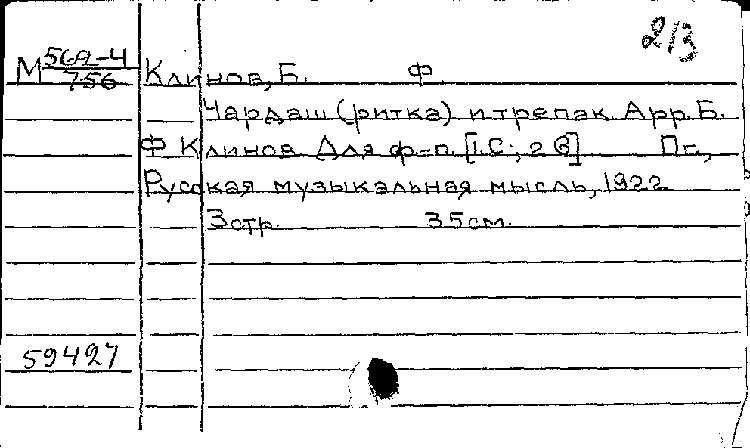 2/3
М 56Л-4
756
Клинов, Б. Ф.
Чардаш (ритка) и трепак. Арр. Б.
Ф Клинов. Для ф=п. [1.С; 2 G] Пг.,
Русская музыкальная мысль, 1922
3 стр. 35 см.
59427